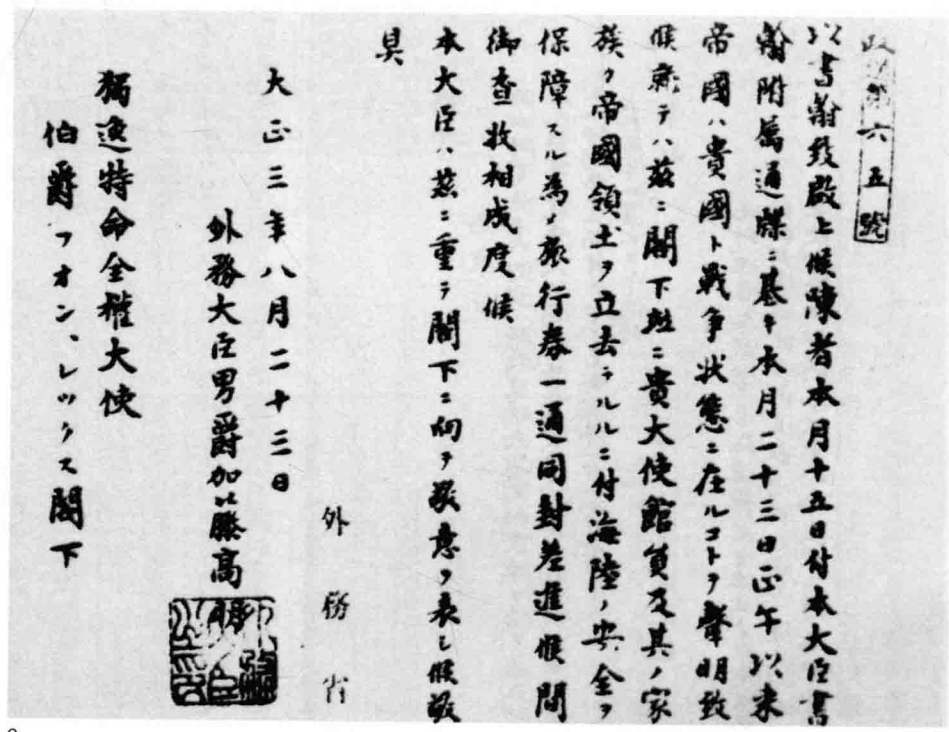 政第六五號
以書翰致啟上候陳者本月十五日付本大臣書
翰附属通牒ニ基キ本月二十三日正午以来
帝國ハ貴國ト戦争状態ニ在ルコトヲ聲明致
候就テハ茲ニ閣下並ニ貴大使館員及其ノ家
族ノ帝國領土ヲ立去ラルルニ付海陸ノ安全ヲ
保障スル為ノ旅行券一通同封差進候間
御査收相成度候
本大臣ハ茲ニ重テ閣下ニ向テ敬意ヲ表シ候敬
具
外務省
大正三年八月二十三日
外務大臣男爵加藤高明
獨逸特命全權大使
伯爵フオン、レツクス閣下